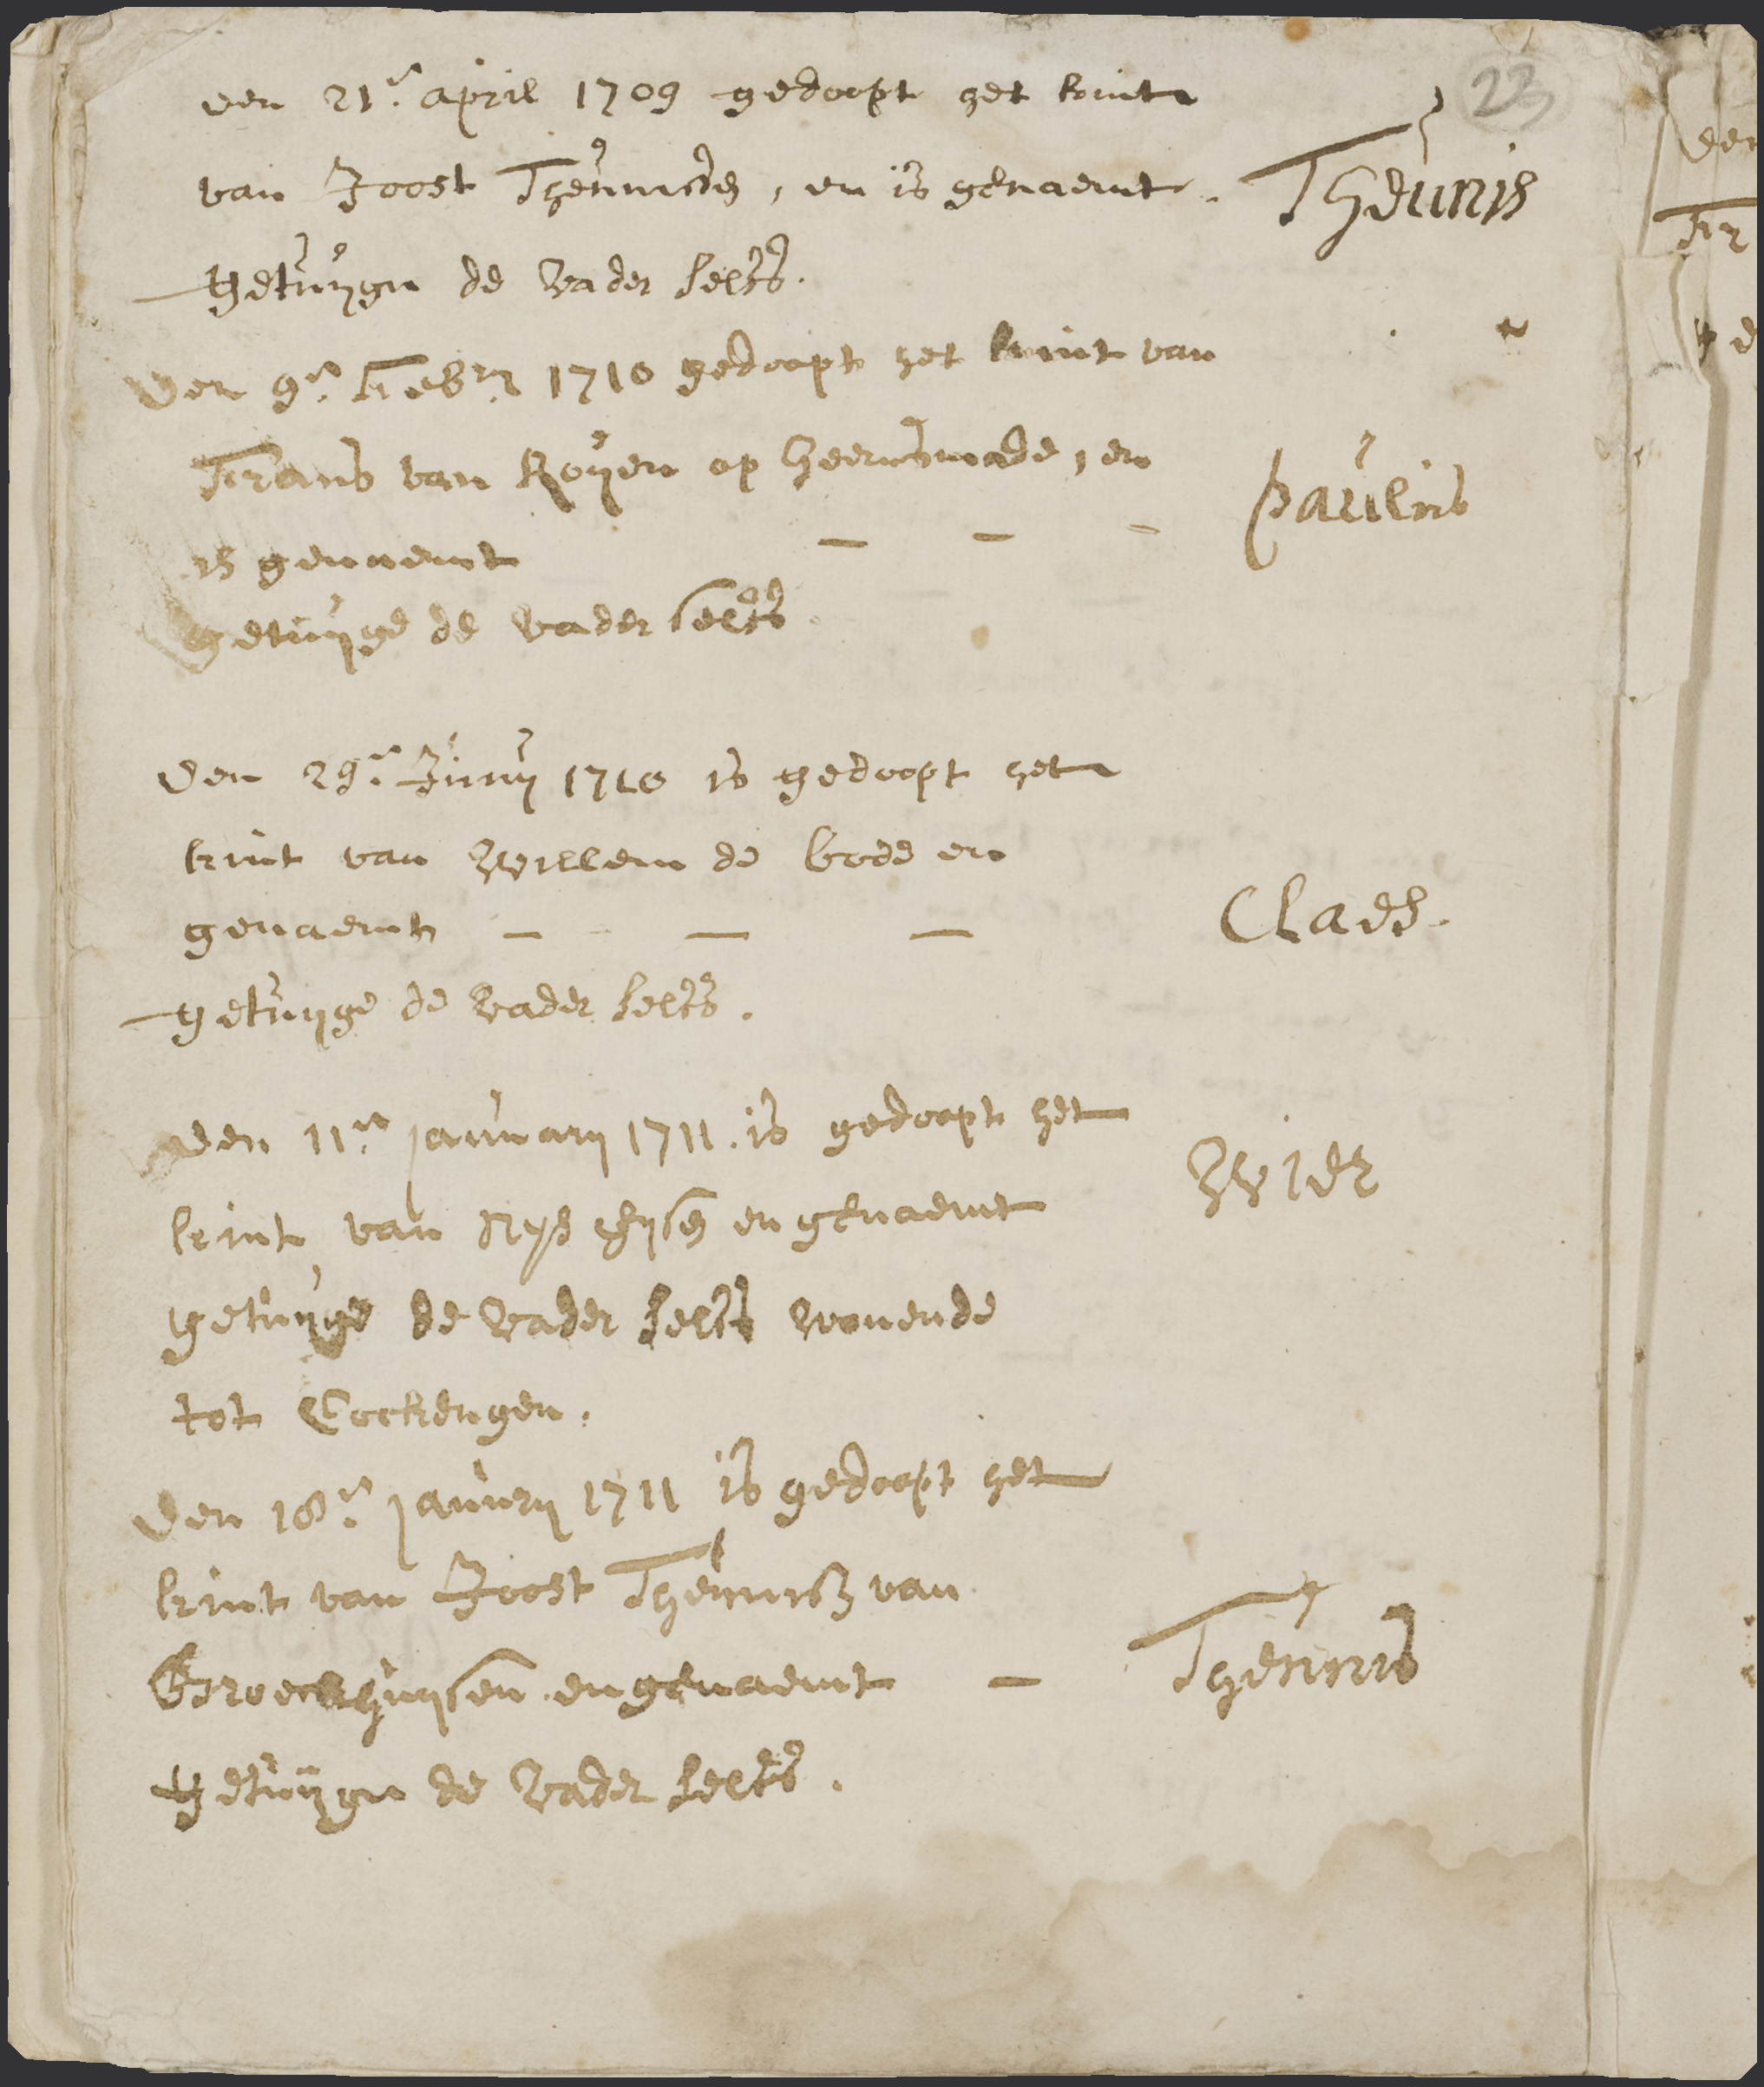 23
den 21.n april 1709 gedoopt het kint
van Joost Theunisse, en is genaemt. Theunis
Getuygen de Vader selfs.
Den 9.n Feb.r 1710 gedoopt het kint van
Frans van Royen op Geernsmade, en
is genaemt — — — Paulus
Getuyge de Vader selfs
Den 29.n Juny 1710 is gedoopt het
kint van Willem de bode en
genaemt — — — Claes.
Getuyge de Vader selfs.
Den 11.n january 1711. is gedoopt het
kint van Nys en genaemt Wier
Getuyge de Vader selfs wonende
tot Cockengen.
Den 18.n januwry 1711 is gedoopt het
kint van Joost Theunisz van
Broeckhuysen en genaemt — Theunis
Getuygen de Vader selfs.